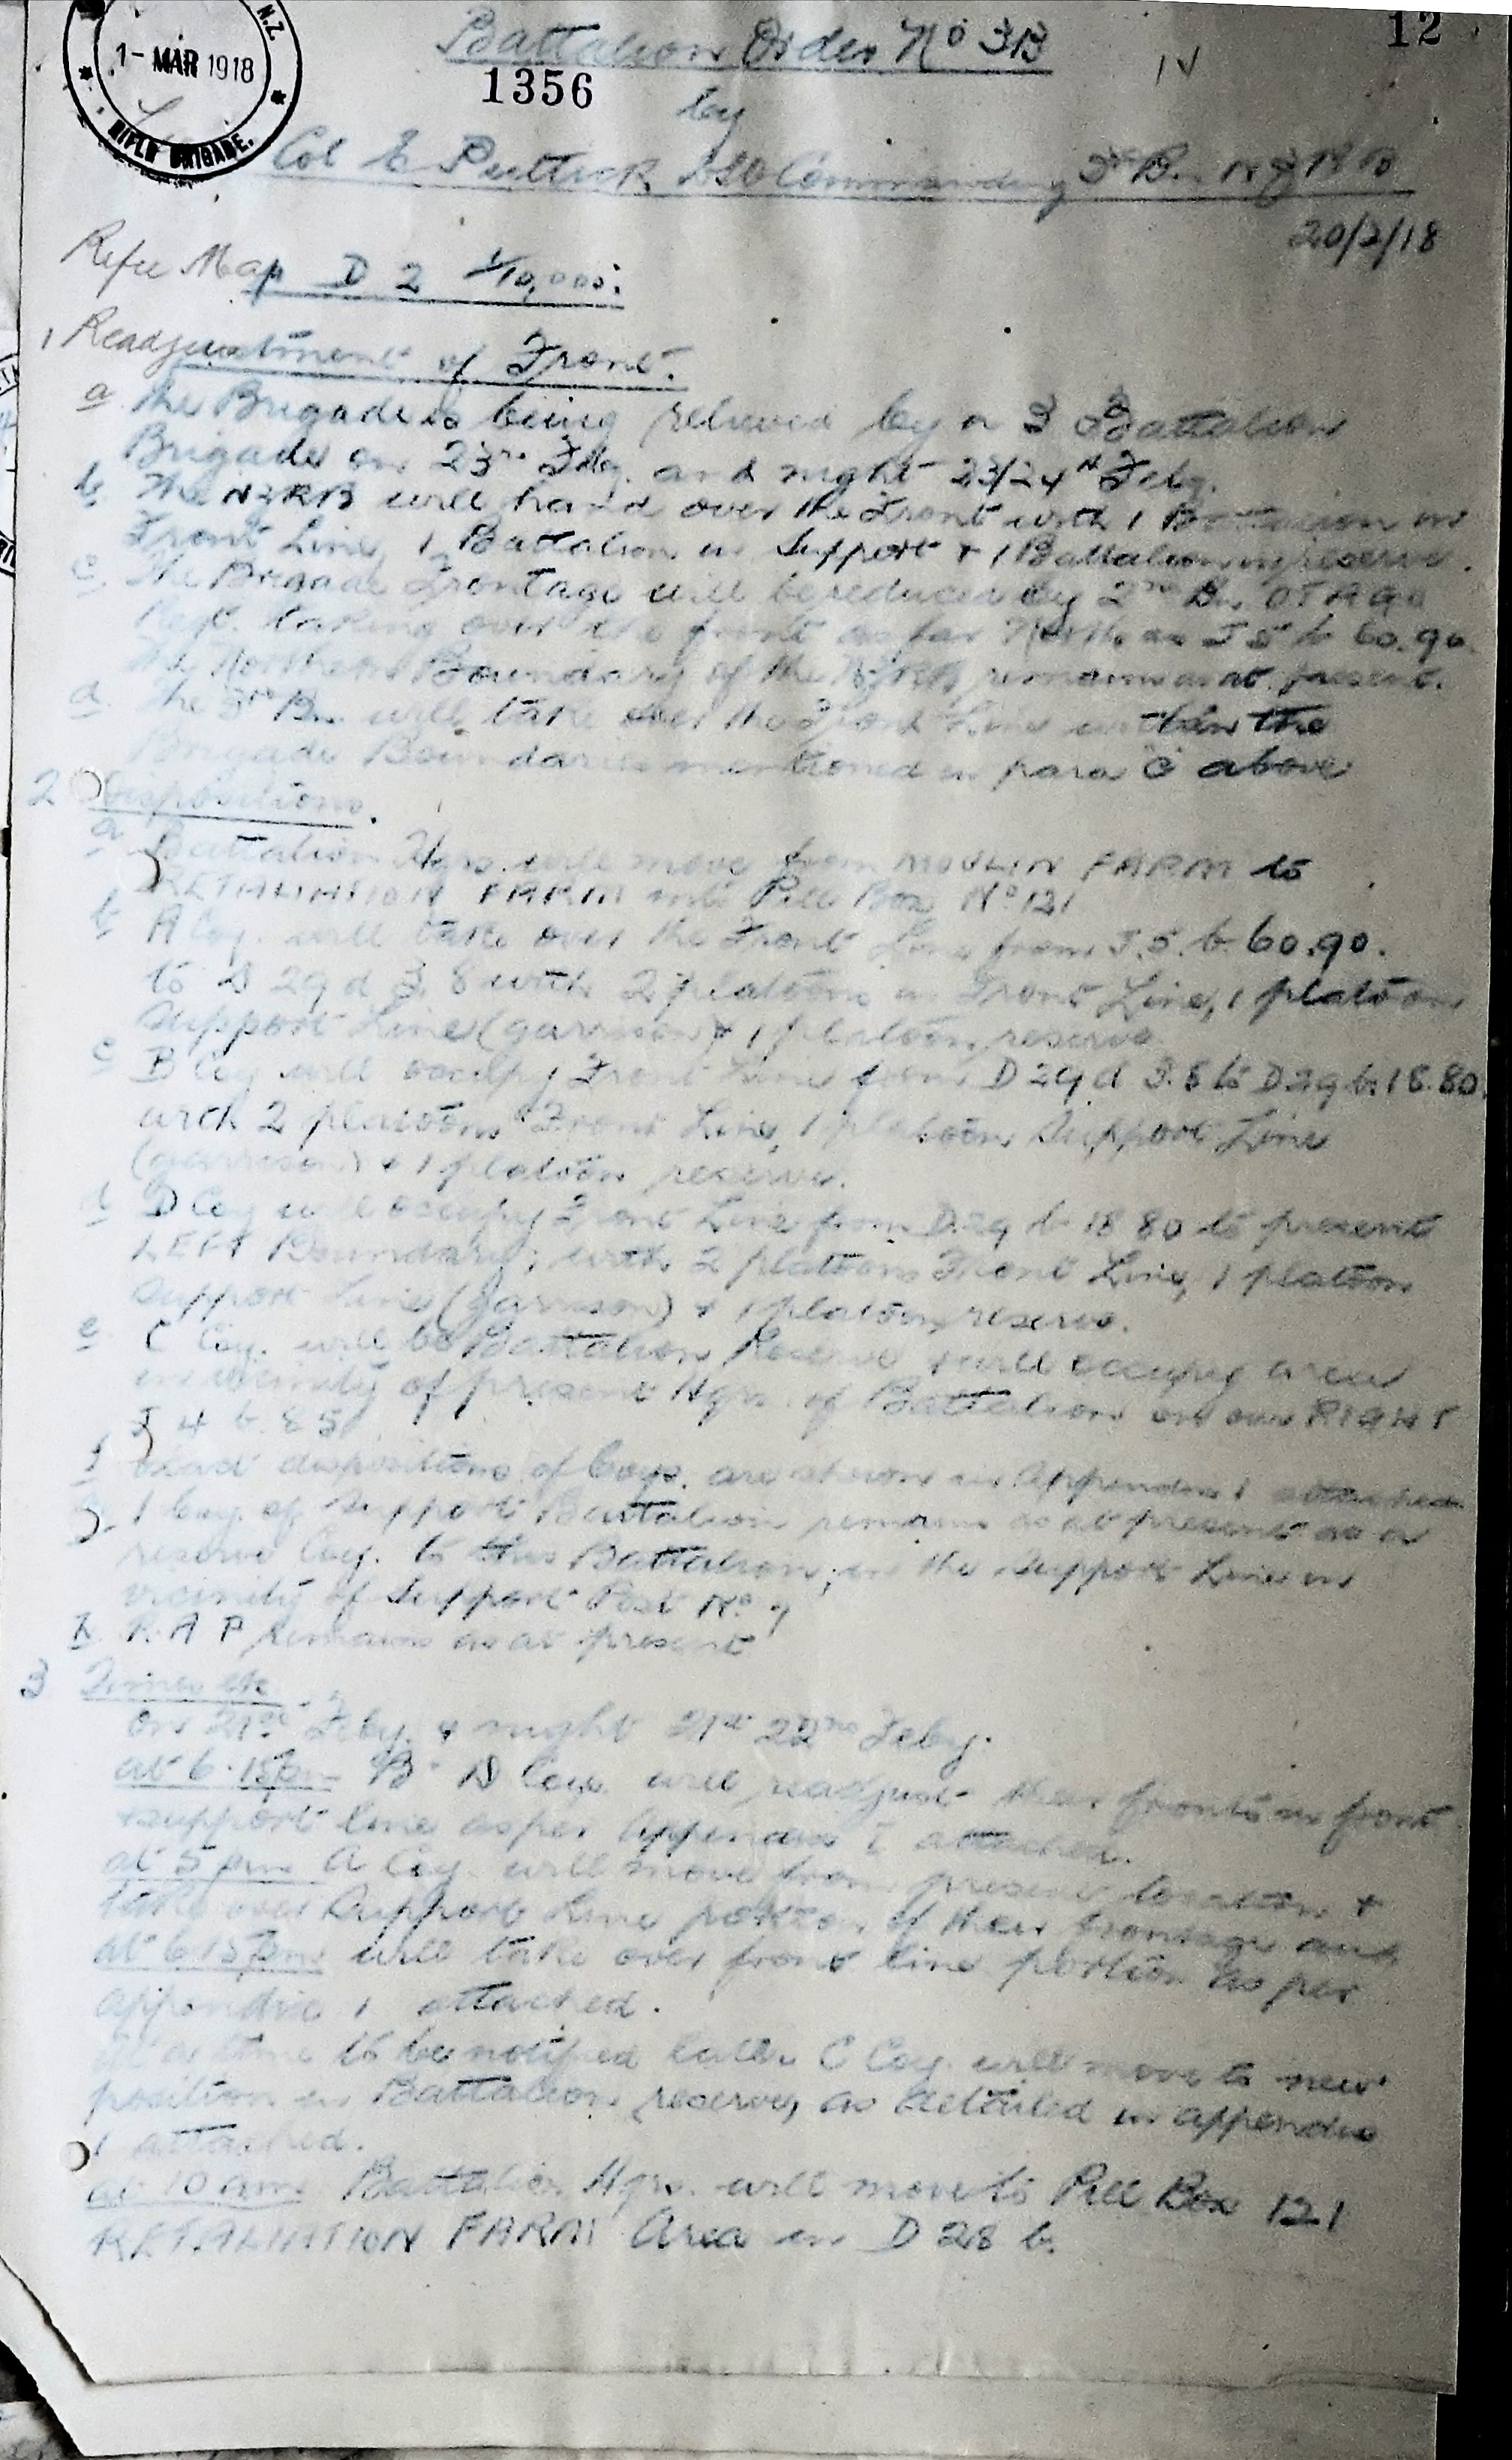 12
N.Z.
1 - MAR 1918
RIFLE BRIGADE.
Battalion Order No 3B
1356
by
Col E Puttick DSO Commanding 3rd Bn NZRB
20/2/18
Refce Map D 2 1/10,000:
1 Readjustment of Front.
a The Brigade is being relieved by a 3 Battalion
Brigade on 23rd Feby. and night 23/24th Feby.
b. The NZRB will hand over the Front with 1 Battalion in
Front Line, 1 Battalion in Support + 1 Battalion in reserve.
c. The Brigade Frontage will be reduced by 2nd Bn. OTAGO
Regt. taking over the front as far North as J 5 b 60.90.
The Northern Boundary of the NZRB remains as at present.
d. The 3rd Bn. will take over the Front Line within the
Brigade Boundaries mentioned in para C above
2 Dispositions.
a Battalion Hqrs. will move from MOULIN FARM to
RETALIATION FARM Pill Box No 121
b A Coy. will take over the Front Line from J.5.b.60.90.
to D 29 d 3.8 with 2 platoons in Front Line, 1 platoon
Support Line (garrison) + 1 platoon reserve
c B Coy will occupy Front Line from D 29 d 3.8 to D 29 b. 18.80.
with 2 platoons Front Line, 1 platoon Support Line
(garrison) + 1 platoon reserve.
d D Coy will occupy Front Line from D.29 b 18 80 to present
LEFT Boundary; with 2 platoons Front Line, 1 platoon
Support Line (garrison) + 1 platoon reserve.
e C Coy. will be Battalion Reserve + will occupy area
in vicinity of present Hqrs. of Battalion on our RIGHT
J 4 b. 85
f dispositions of Coys. are shown in Appendix 1 attached
g. 1 Coy. of Support Battalion remains as at present as a
reserve Coy. to this Battalion; in the Support Line in
vicinity of Support Post No. 7
h R.A P remains as at present
3 Times etc
on 21st Feby. & night 21st 22nd Feby.
at 6.15pm B D Coys. will readjust their fronts in front
+ support line as per Appendix 1 attached.
at 5 pm A Coy. will move from present location +
take over Support Line portion of their frontage and
at 6.15pm will take over front line portion as per
appendix 1 attached.
At a time to be notified later C Coy. will move to new
position in Battalion reserve, as detailed in appendix
1 attached.
at 10 am Battalion Hqrs. will move to Pill Box 121
RETALIATION FARM Area in D 28 b.